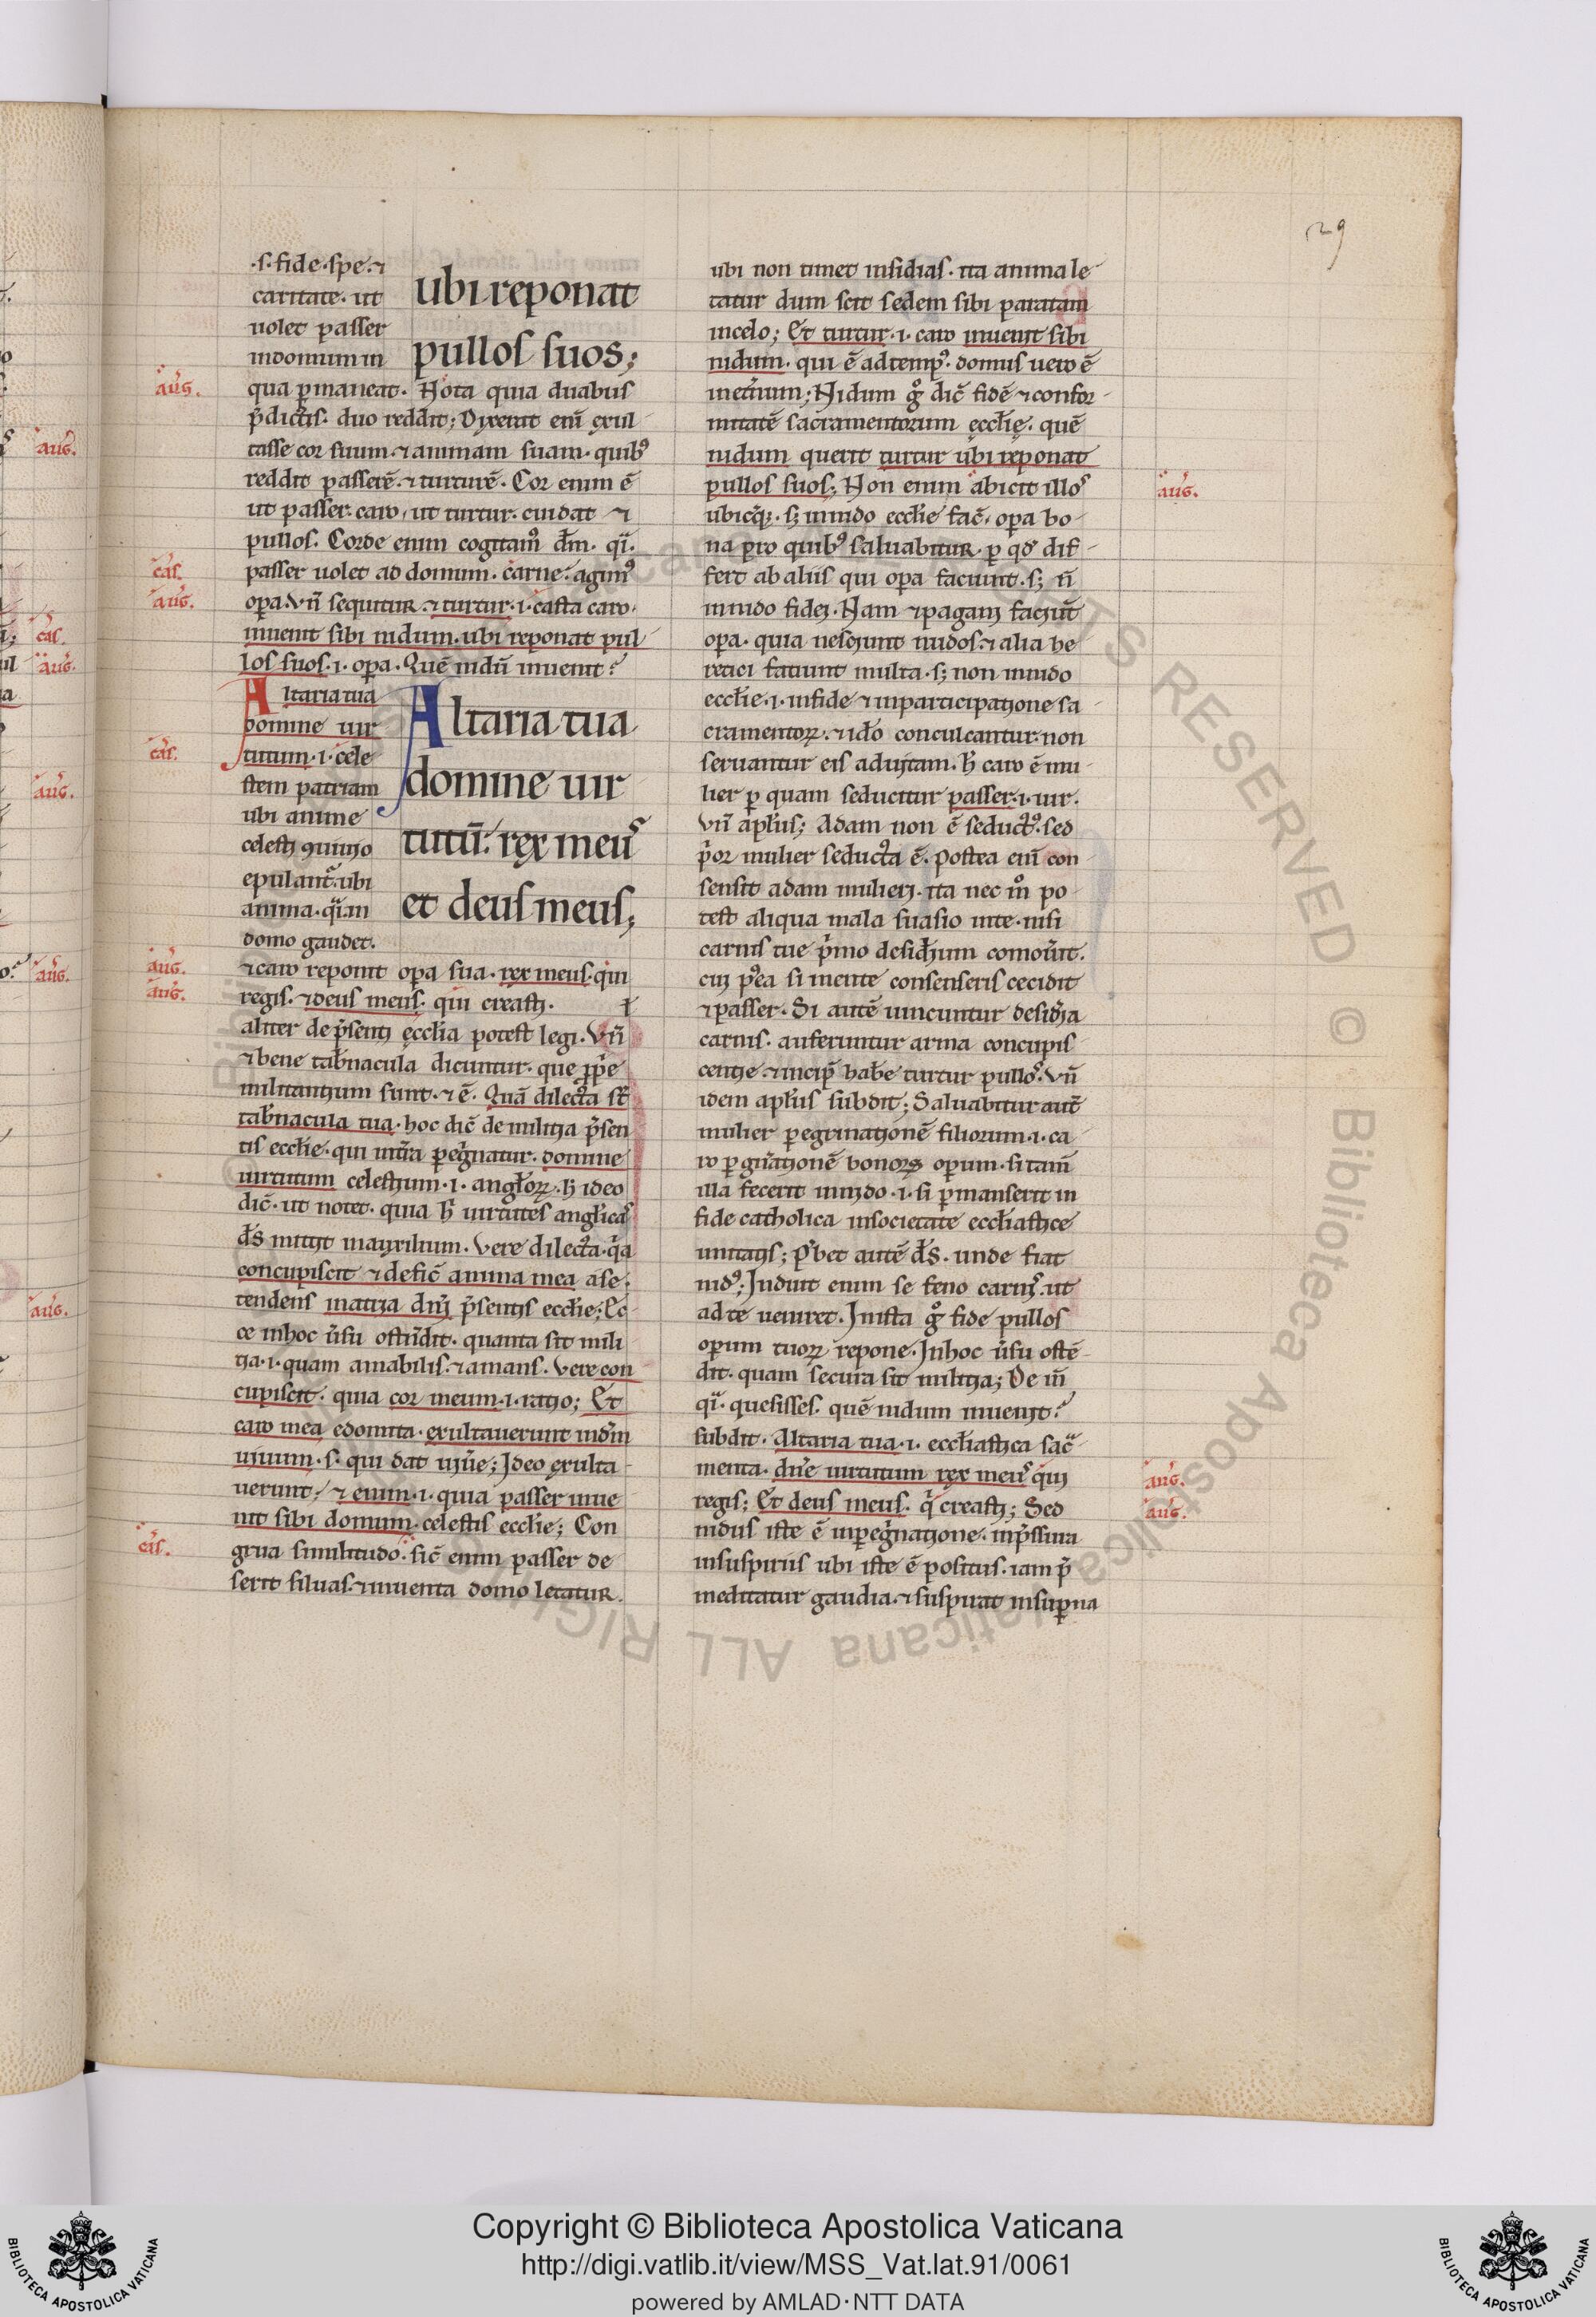 29
.s. fide. spe. ⁊
caritate. ut
uolet passer
indomum in
ubi reponat
pullos suos;
qua ꝑmaneat. Nota quia duabus
p̃dictis. duo reddit; Dixerat eni᷒ exul-
tasse cor suum. ⁊ animam suam. quibꝰ
reddit passerē. ⁊ turturē. Cor enim ē
ut passer. caro, ut turtur. cui dat ⁊
pullos. Corde enim cogitamꝰ dm̄. q̈i.
passer uolet ad domum. carne. agimꝰ
oꝑa. Vn̄ sequitur. ⁊ turtur .i. casta caro.
inuenit sibi nidum. ubi reponat pul
los suos .i. oꝑa. Quē nidū inuenit?
Altaria tua
domine uir
tutum .i. cele
stem patriam
ubi anime
celesti ꝯuiuio
epulant᷑. ubi
anima. q̈i. in
domo gaudet.
Altaria tua
domine uir
tutū. rex meus
et deus meus;
⁊ caro reponit oꝑa sua. rex meus. qui
regis. ⁊ deus meus. qui creasti.
aliter de p̃senti ęcclia potest legi. Vn̄
⁊ bene tabnacula dicuntur. que ꝓpe
militantium sunt. ⁊ ē. Quā dilecta st̄
tabnacula tua. hoc dic̄ de militia p̃sen
tis ecclie. qui int̃ra peg̃natur. domine
uirtutum celestium .i. angłorꝝ. h̄ ideo
dic̄. ut notet. quia h̄ uirtutes anglicas
ds̄ mittit in auxilium. Vere dilecta. q̃a
concupiscit ⁊ defic̄ anima mea a se.
tendens in atria dn̄i p̃sentis ecclie; Ec-
ce in hoc ũsu ostn̄dit. quanta sit mili
tia .i. quam amabilis. ⁊ amans. Vere con
cupiscit. quia cor meum .i. ratio; Et
caro mea edomita. exultauerunt in dm̄
uiuum .s. qui dat uiũe; Ideo exulta-
uerunt, ⁊ enim .i. quia passer inue
nit sibi domum. celestis ecclie; Con
grua similitudo. sic̄ enim passer de
serit siluas. ⁊ inuenta domo letatur.
ubi non timet insidias. ita anima le-
tatur dum scit sedem sibi paratam
in celo; Et turtur .i. caro inuenit sibi
nidum. qui ē ad tempꝰ. domus uero ē
inet̃num; Nidum g̊ dic̄ fidē ⁊ confor-
mitatē sacramentorum ęcclię. quē
nidum querit turtur ubi reponat
pullos suos; Non enim abicit illos
ubicꝗꝫ. sꝫ in nido ecclie fac̄. oꝑa bo-
na pro quibꝰ saluabitur. ꝑ qd̄ dif-
fert ab aliis qui opa faciunt. sꝫ n̄
in nido fidei. Nam ⁊ pagani faciūt
oꝑa. quia uestiunt nudos. ⁊ alia he
retici faciunt multa. sꝫ non in nido
ecclie .i. in fide ⁊ in participatione sa
cramentorꝝ. ⁊ ido conculcantur. non
seruantur eis ad uitam. h̄ caro ē mu-
lier ꝑ quam seducitur passer .i. uir.
Vn̄ aplus; Adam non ē seductꝰ. sed
p̃or mulier seducta ē. Postea eni᷒ con-
sensit adam mulieri. ita nec m̊ po-
test aliqua mala suasio inte. nisi
carnis tue p̃mo desid̃ium comou̇it.
cui pꝰea si mente consenseris cecidit
⁊ passer. Si autē uincuntur desid̃ia
carnis. auferuntur arma concupis-
centie. ⁊ incip̄ habe turtur pullos. Vn̄
idem aplus subdit; Saluabitur aut̄
mulier ꝑ egrinationē filiorum .i. ca
ro ꝑ gn̄ationē bonorꝝ operum. si tam̄
illa fecerit in nido .i. si ꝑmanserit in
fide catholica in societate eccliastice
unitatis; p̊bet autē ds̄. unde fiat
nidꝰ; Induit enim se feno carnis. ut
ad te ueniret. In ista g̊ fide pullos
operum tuorꝝ repone. In hoc ũsu ostē-
dit. quam secura sit militia; De n̄
q̈i. quesisses. quē nidum inuenit?
subdit. Altaria tua .i. eccliastica sac̄-
menta. dn̄e uirtutum rex meus qui
regis; Et deus meus. q̇ creasti; Sed
nidus iste ē in ꝑeg̃natione. in p̃ssura
in suspiriis ubi iste ē positus. iam p̃
meditatur gaudia. ⁊ suspirat in suꝑna
aug.
cas.
aug.
cas.
aug.
aug.
cas.
aug.
aug.
aug.
aug.
cas.
aug.
aug.
cas.
aug.
aug.
aug.
Copyright © Biblioteca Apostolica Vaticana
http://digi.vatlib.it/view/MSS_Vat.lat.91/0061
powered by AMLAD·NTT DATA
BIBLIOTECA APOSTOLICA VATICANA
BIBLIOTECA APOSTOLICA VATICANA
© Biblioteca Apostolica Vaticana ALL RIGHTS RESERVED